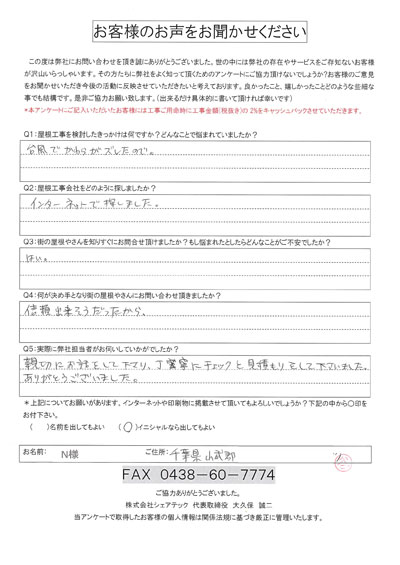 お客様のお声をお聞かせください
この度は弊社にお問い合わせを頂き誠にありがとうございました。世の中には弊社の存在やサービスをご存知ないお客様
が沢山いらっしゃいます。その方たちに弊社をよく知って頂くためのアンケートにご協力頂けないでしょうか?お客様のご意見
をお聞かせいただき今後の活動に反映させていただきたいと考えております。良かったこと、嬉しかったことどのような些細な
事でも結構です。是非ご協力お願い致します。(出来るだけ具体的に書いて頂ければ幸いです)
*本アンケートにご記入いただいたお客様には工事ご用命時に工事金額(税抜き)の2%をキャッシュバックさせていただきます。
Q1:屋根工事を検討したきっかけは何ですか?どんなことで悩まれていましたか?
台風でかわらがズレたので。
Q2:屋根工事会社をどのように探しましたか?
インターネットで探しました。
Q3:街の屋根やさんを知りすぐにお問合せ頂けましたか?もし悩まれたとしたらどんなことがご不安でしたか?
はい。
Q4:何が決め手となり街の屋根やさんにお問い合わせ頂きましたか?
信頼出来そうだったから、
Q5:実際に弊社担当者がお伺いしていかがでしたか?
親切にお話をして下さり、丁寧にチェックと見積もりをして下さいました。
ありがとうございました。
*上記についてお願いがあります。インターネットや印刷物に掲載させて頂いてもよろしいでしょうか?下記の中から〇印を
お付け下さい。
( )名前を出してもよい (〇)イニシャルなら出してもよい
お名前: N様 ご住所: 千葉県山武郡
FAX 0438-60-7774
ご協力ありがとうございました。
株式会社シェアテック 代表取締役 大久保 誠二
当アンケートで取得したお客様の個人情報は関係法規に基づき厳正に管理いたします。